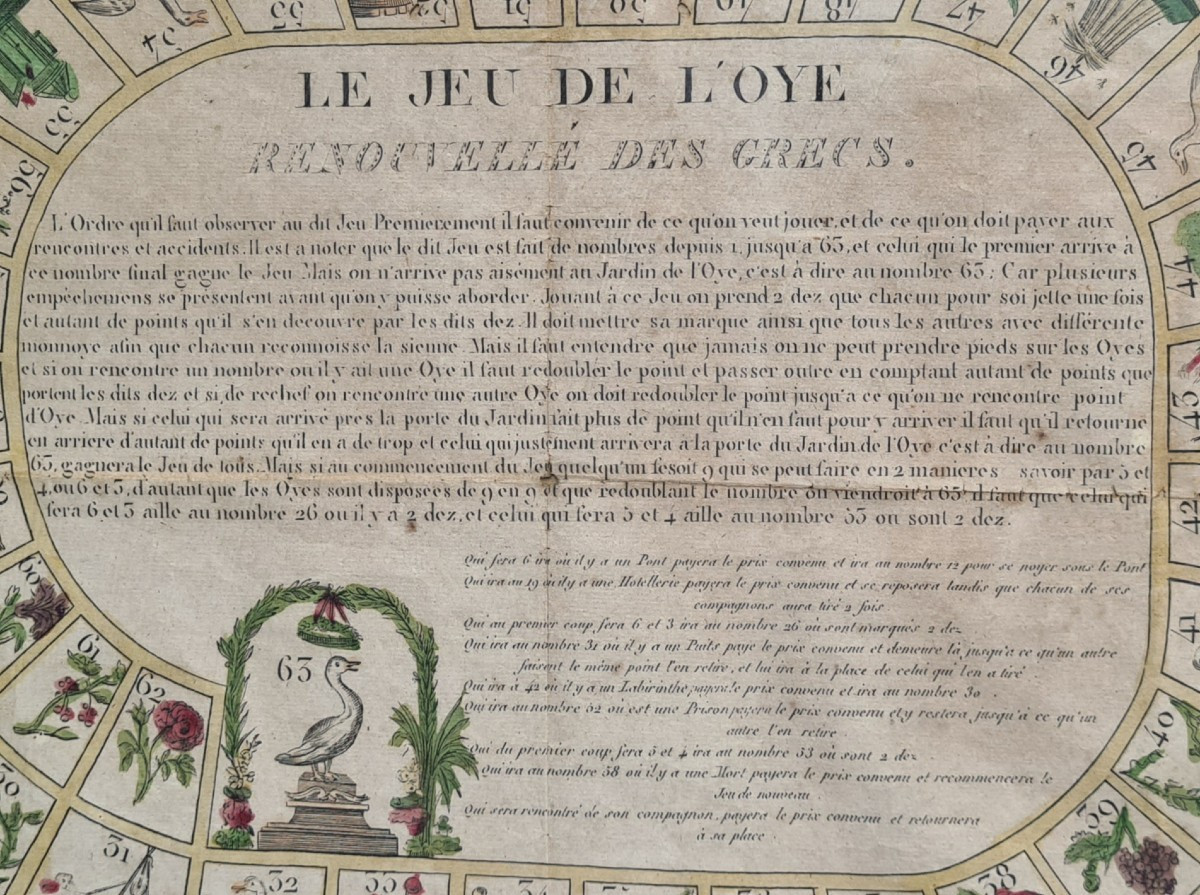 LE JEU DE L'OYE
RENOUVELLÉ DES GRECS.
L'Ordre qu'il faut observer au dit Jeu Premierement il faut convenir de ce qu'on veut jouer, et de ce qu'on doit payer aux
rencontres et accidents. Il est a noter que le dit Jeu est fait de nombres depuis 1, jusqu'a 63, et celui qui le premier arrive à
ce nombre final gagne le Jeu Mais on n'arrive pas aisément au Jardin de l'Oye, c'est à dire au nombre 63; Car plusieurs
empêchemens se présentent avant qu'on y puisse aborder. Jouant à ce Jeu on prend 2 dez que chacun pour soi jette une fois
et autant de points qu'il s'en decouvre par les dits dez Il doit mettre sa marque ainsi que tous les autres avec différente
monnoye afin que chacun reconnoisse la sienne. Mais il faut entendre que jamais on ne peut prendre pieds sur les Oyes
et si on rencontre un nombre ou il y ait une Oye il faut redoubler le point et passer outre en comptant autant de points que
portent les dits dez et si de rechef on rencontre une autre Oye on doit redoubler le point jusqu'a ce qu'on ne rencontre point
d'Oye Mais si celui qui sera arrivé prés la porte du Jardin fait plus de point qu'il n'en faut pour y arriver il faut qu'il retourne
en arriere d'autant de points qu'il en a de trop et celui qui justement arrivera à la porte du Jardin de l'Oye c'est à dire au nombre
63, gagnera le Jeu de tous. Mais si au commencement du Jeu quelqu'un fesoit 9 qui se peut faire en 2 manieres savoir par 5 et
4, ou 6 et 3, d'autant que les Oyes sont disposées de 9 en 9 et que redoublant le nombre on viendroit à 63, il faut que celui qui
fera 6 et 3 aille au nombre 26 ou il y a 2 dez, et celui qui fera 5 et 4 aille au nombre 53 ou sont 2 dez.
Qui fera 6 ira où il y a un Pont payera le prix convenu et ira au nombre 12 pour se noyer sous le Pont
Qui ira au 19 où il y a une Hotellerie payera le prix convenu et se reposera tandis que chacun de ses
compagnons aura tiré 2 fois
Qui au premier coup fera 6 et 3 ira au nombre 26 où sont marqués 2 dez
Qui ira au nombre 31 où il y a un Puits paye le prix convenu et demeure là, jusqu'a ce qu'un autre
faisent le même point l'en retire, et lui ira à la place de celui qui l'en a tiré
Qui ira à 42 où il y a un Labirinthe payera le prix convenu et ira au nombre 30
Qui ira au nombre 52 où est une Prison payera le prix convenu et y restera, jusqu'à ce qu'un
autre l'en retire
Qui du premier coup fera 5 et 4 ira au nombre 53 où sont 2 dez
Qui ira au nombre 58 où il y a une Mort payera le prix convenu et recommencera le
Jeu de nouveau
Qui sera rencontré de son compagnon, payera le prix convenu et retournera
à sa place
63
55
54
53
52
51
50
49
48
47
46
45
44
43
42
41
40
39
38
34
33
32
31
30
62
61
60
56